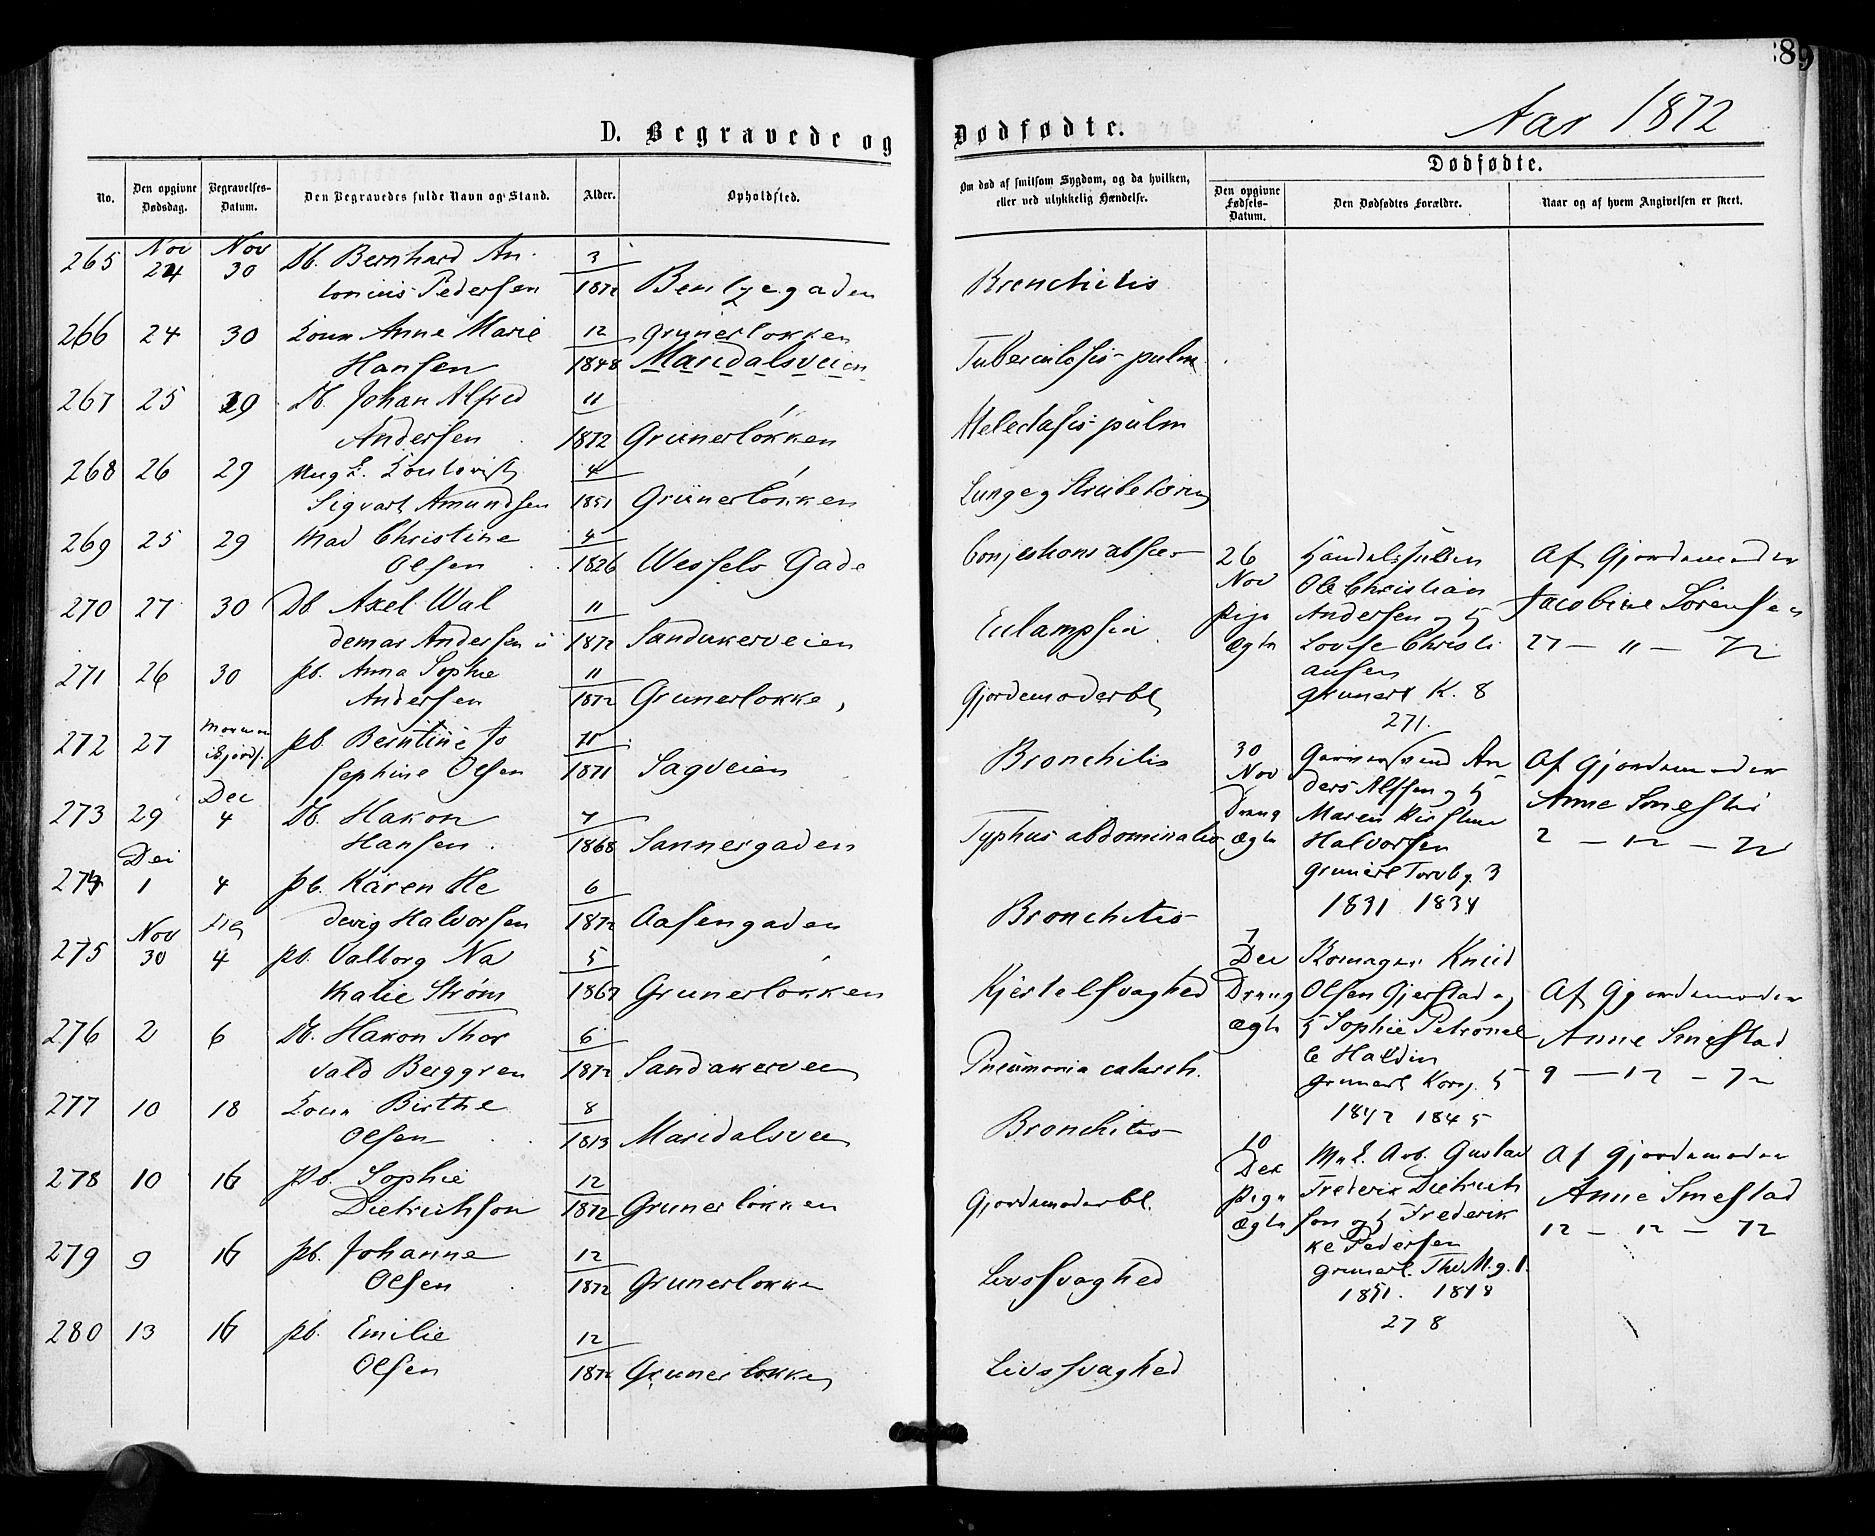 89
Aar 1872
D. Begravede og Dødfødte.
No.
Den opgivne Dødsdag.
Begravelses-Datum.
Den Begravedes fulde Navn og Stand.
Alder.
Opholdsted.
Om død af smitsom Sygdom, og da hvilken, eller ved ulykkelig Hændelse.
Dødfødte.
Den opgivne Fødsels-Datum.
Den Dødfødtes Forældre.
Naar og af hvem Angivelsen er skeet.
265 Nov 24 Nov 30 Db. Bernhard An-
tonius Pedersen 3 1872 Bentzegaden Bronchitis
266 24 30 Anne Marie
Hansen 12 1848 Grunerløkken
Maridalsveien Tuberculosis pulm.
267 25 29 Db. Johan Alfred
Andersen 11 1872 Grünerløkken Atelectasis pulm
268 26 29 Ung
Sigvart Amundsen 4 1851 Grünerløkken Lunge og Strubetæring
269 25 29 Mad Christine
Olsen 4 1826 Wessels Gade
270 27 30 Db Axel Wal
demar Andersen 11 1872 Sandakerveien Eclampsia
271 26 30 pb. Anna Sophie
Andersen 11 1872 Grunerløkke, Gjordemoderbl
272 27 pb. Berntine Jo
sephine Olsen 11 1871 Sagveien Bronchitis
273 29 Dec 4 Db. Hakon
Hansen. 7 1868 Sannergaden Typhus abdominalis
274 Dec 1 4 pb. Karen He
devig Halvorsen 6 1872 Aasengaden Bronchitis
275 Nov 30 Dec 4 pb. Valborg Na
thalie Strøm 5 1867 Grunerløkken Kjertelsvaghed
276 2 6 Db. Hakon Thor
vald Berggren 6 1872 Sandakerveien Pneumonia catarrh.
277 10 18 Birthe
Olsen 8 1813 Maridalsveien Bronchitis
278 10 16 pb. Sophie
Dietrichson 12 1872 Grunerløkken Gjordemoderbl.
279 9 16 pb. Johanne
Olsen 12 1872 Grunerløkke Livssvaghed
280 13 16 pb. Emilie
Olsen 12 1872 Grunerløkken Livssvaghed
26 Nov Pige Ægte
Ole Christian
Andersen og H
Lovise Christi
ansen
Grunerl K. 8
271.
Af Gjordemoder
Jacobine Sørensen
27 — 11 — 72
30 Nov Dreng Ægte
An
ders Alfsen og H
Maren Kirstine
Halvorsen
Grunerl Torvbg. 3
1831 1834
Af Gjordemoder
Anne Smestad
2 — 12 — 72
7 Dec Dreng Ægte
Knud
Olsen Gjerstad og
H Sophie Petronel
le Haldin
Grunerl Korsg. 5
1842 1845
Af Gjordemoder
Anne Smestad
9 — 12 — 72
10 Dec Pige Ægte
Arb. Gustav
Frederik Dietrich
son og H Frederik
ke Pedersen
Grunerl. Th M. g. 1.
1851. 1848
278
Af Gjordemoder
Anne Smestad
12 — 12 — 72